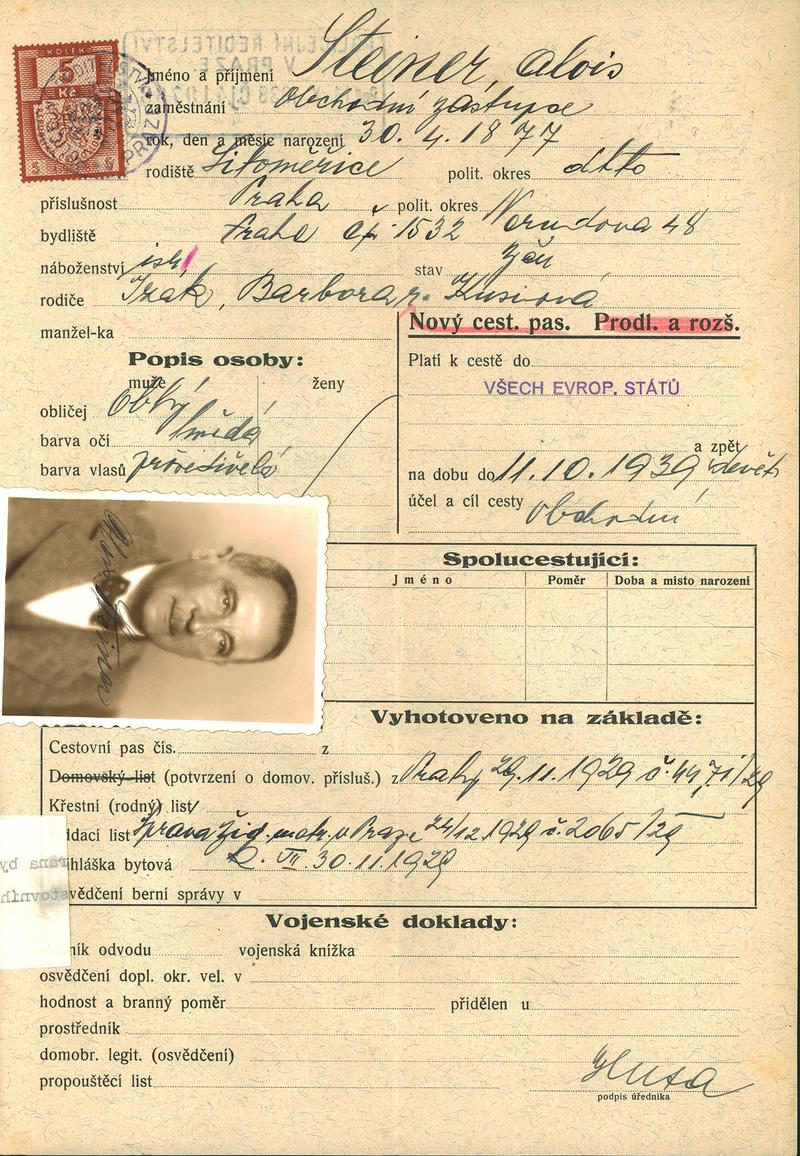 KOLEK
5
Kč
POLICEJNÍ ŘEDITELSTVÍ
V PRAZE
Jméno a příjmení Steiner, Alois
zaměstnání Obchodní zástupce
rok, den a měsíc narození 30. 4. 1877
rodiště Litoměřice polit. okres dtto
příslušnost Praha polit. okres
bydliště Praha čp. 1532 Nerudova 48
náboženství isr. stav žen
rodiče Izak, Barbora r.
manžel-ka
Nový cest. pas. Prodl. a rozš.
Popis osoby:
muže ženy
obličej oblý
barva očí hnědá
barva vlasů prošedivělá
Platí k cestě do
VŠECH EVROP. STÁTŮ
a zpět
na dobu do 11. 10. 1939 devět
účel a cíl cesty obchodní
Alois Steiner
Spolucestující:
Jméno Poměr Doba a místo narození
Vyhotoveno na základě:
Cestovní pas čís. z
Domovský list (potvrzení o domov. přísluš.) z Prahy 29. 11. 1929 č. 4471/29
Křestní (rodný) list
ddací list Správa žid. matr. v Praze 24/12 1929 č. 2065/29
ihláška bytová VII. 30. 11. 1929
svědčení berní správy v
Vojenské doklady:
ník odvodu vojenská knížka
osvědčení dopl. okr. vel. v
hodnost a branný poměr přidělen u
prostředník
domobr. legit. (osvědčení)
propouštěcí list
podpis úředníka